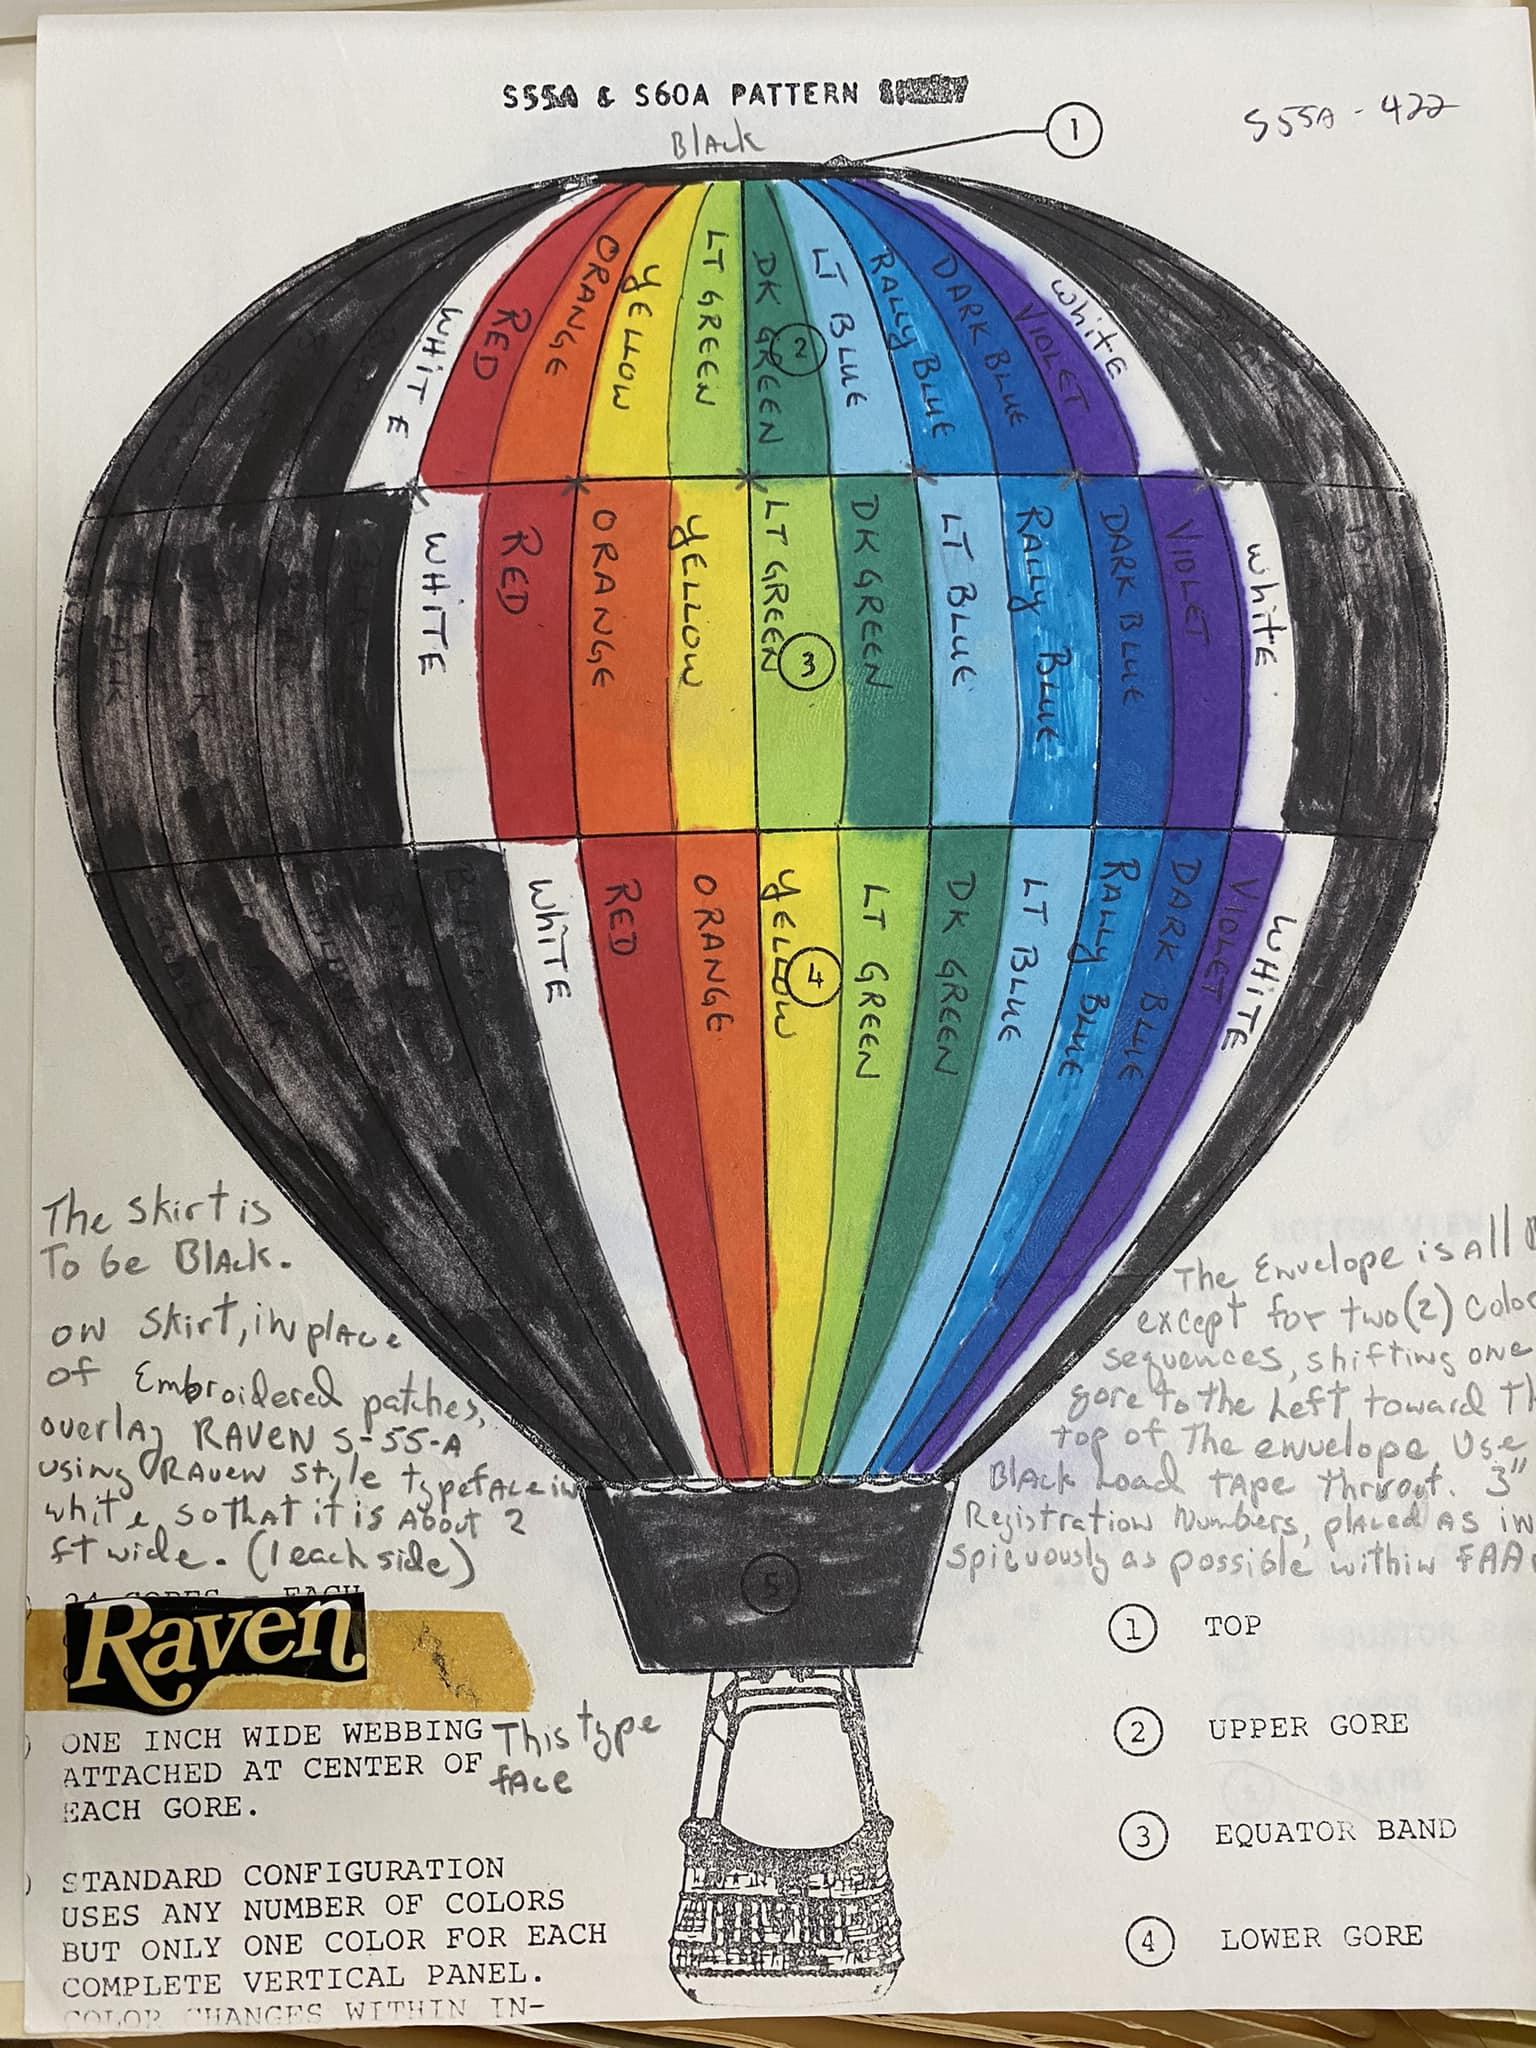 S55A & S60A PATTERN
S55A-422
Black
1
WHITE
RED
ORANGE
YELLOW
LT GREEN
DK GREEN
2
LT BLUE
RALLY BLUE
DARK BLUE
VIOLET
White
WHITE
RED
ORANGE
YELLOW
LT GREEN
3
DK GREEN
LT BLUE
RALLY BLUE
DARK BLUE
VIOLET
White
BLACK
WHITE
RED
ORANGE
YELLOW
4
LT GREEN
DK GREEN
LT BLUE
RALLY BLUE
DARK BLUE
VIOLET
WHITE
The skirt is
To be Black.
on skirt, in place
of Embroidered patches,
overlay RAVEN S-55-A
using RAVEN style typeface in
white so that it is About 2
ft wide. (1 each side)
The Envelope is all
except for two (2) Color
sequences, shifting one
gore to the Left toward
top of The envelope Use
Black Load tape thruout. 3"
Registration Numbers, placed as in
spicuously as possible within FAA
5
24 GORES - EACH
Raven
This type
face
ONE INCH WIDE WEBBING
ATTACHED AT CENTER OF
EACH GORE.
STANDARD CONFIGURATION
USES ANY NUMBER OF COLORS
BUT ONLY ONE COLOR FOR EACH
COMPLETE VERTICAL PANEL.
COLOR CHANGES WITHIN IN-
1 TOP
2 UPPER GORE
3 EQUATOR BAND
4 LOWER GORE